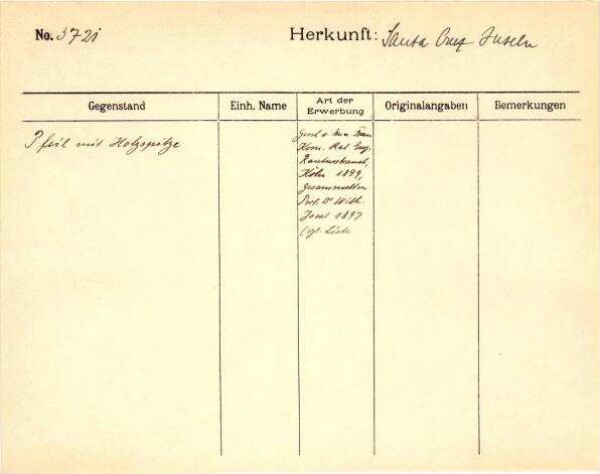 No. 372i Herkunft: Santa Cruz Inseln
Gegenstand Einh. Name Art der Erwerbung Originalangaben Bemerkungen
Pfeil mit Holzspitze
Kom. Rat Eug.
Rautenstrauch,
Köln 1899,
gesammelt von
Prof. Dr. Wilh.
Joest 1897
Liste